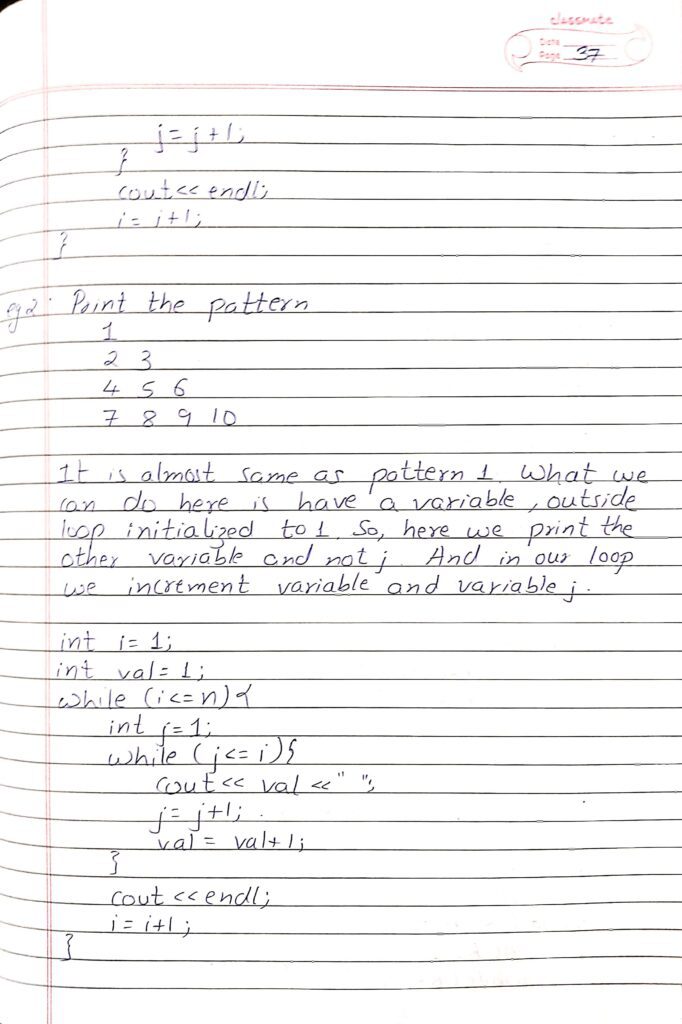 classmate
Date
Page 37
j = j + 1;
}
cout << endl;
i = i + 1;
}
eg 2: Print the pattern
1
2 3
4 5 6
7 8 9 10
It is almost same as pattern 1. What we
can do here is have a variable, outside
loop initialized to 1. So, here we print the
other variable and not j. And in our loop
we increment variable and variable j.
int i = 1;
int val = 1;
while (i <= n) {
int j = 1;
while (j <= i) {
cout << val << " ";
j = j + 1;
val = val + 1;
}
cout << endl;
i = i + 1;
}